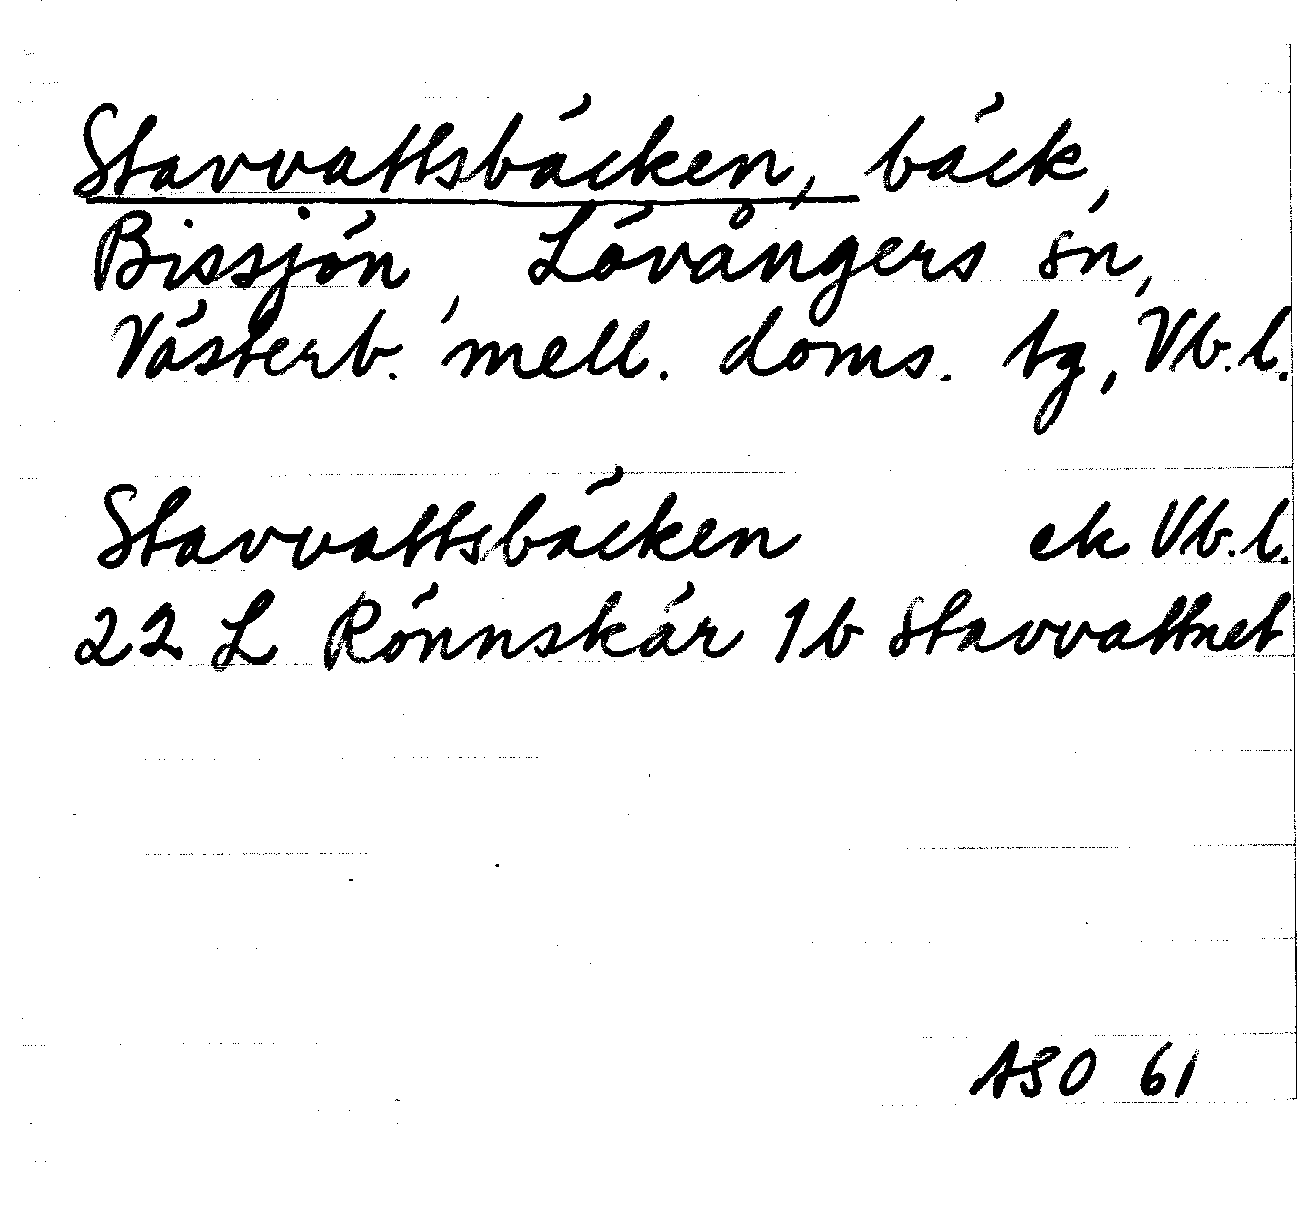 Stavvattsbäcken, bäck,
Bissjön, Lövångers sn,
Västerb. mell. doms. tg, Vb.l.
Stavvattsbäcken ek Vb.l.
22 L Rönnskär 1b Stavvattnet
ASO 61